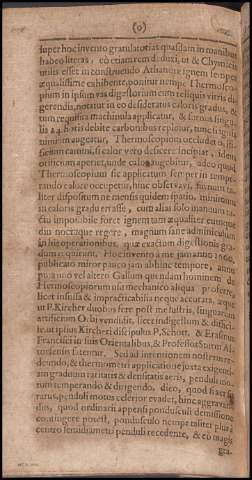 (o)
super hoc invento granulatorias quasdam in manibus
habeo literas, eo etiam rem deduxi, ut & Chymicis
utilis esset in construendo Athanore ignem semper
æqualissimè exhibente, ponitur nempe Thermosco-
pium ipsum vas digestorium cum reliquis vitris di-
gerendis, notatur in eo desideratus caloris gradus, &
tum requisita machinula applicatur, & foramina
debitè carbonibus repletur, tunc si
nimium augeatur, Thermoscopium occludet
si calor verò deficere incipiat, idem
orificium aperiet, unde calor augebitur, adeo quod
Thermoscopium sic applicatum semper in tempe-
rando calore occupetur, hinc observavi,
liter dispositum ne mensis quidem spatio, minimum
in caloris gradu errasse, cum alias solo hominum ta-
ctu impossibile foret ignem tam æqualiter
diu noctuque regere, magnum sanè adminiculum
in hisce operationibus, quæ exactum digestionis gra-
dum requirunt. Hoc inventum à me jam anno 1660.
publicato miror pauco jam abhinc tempore, anno
puta uno vel altero Gallum quendam hominem de
Thermoscopiorum usu mechanico aliqua proferre,
licet insulsa & impracticabilia neque accurata, æque
ut P. Kircher duobus fere post me lustris, singularem
artificium Orbi vendidit, licet indigestum & difficile
ut ipsius Kircheri discipulus P. Schott, & Erasmus
Francisci in suis Orientalibus, & Professor Sturm Al-
torfensis fatentur. Sed ad intentionem nostram re-
deundo, & thermometri applicatione juxta exigenti-
am graduum raritatis & densitatis aëris, penduli mo-
tum temperando & dirigendo, dico, quod si aër sit
rarus, penduli motus celerior evadet, hinc aggravan-
dus, quod ordinariè appensi pondusculi demissione
contingere potest, pondusculo nempe taliter plus à
centro semidiametri penduli recedente, & eò magis
gra-